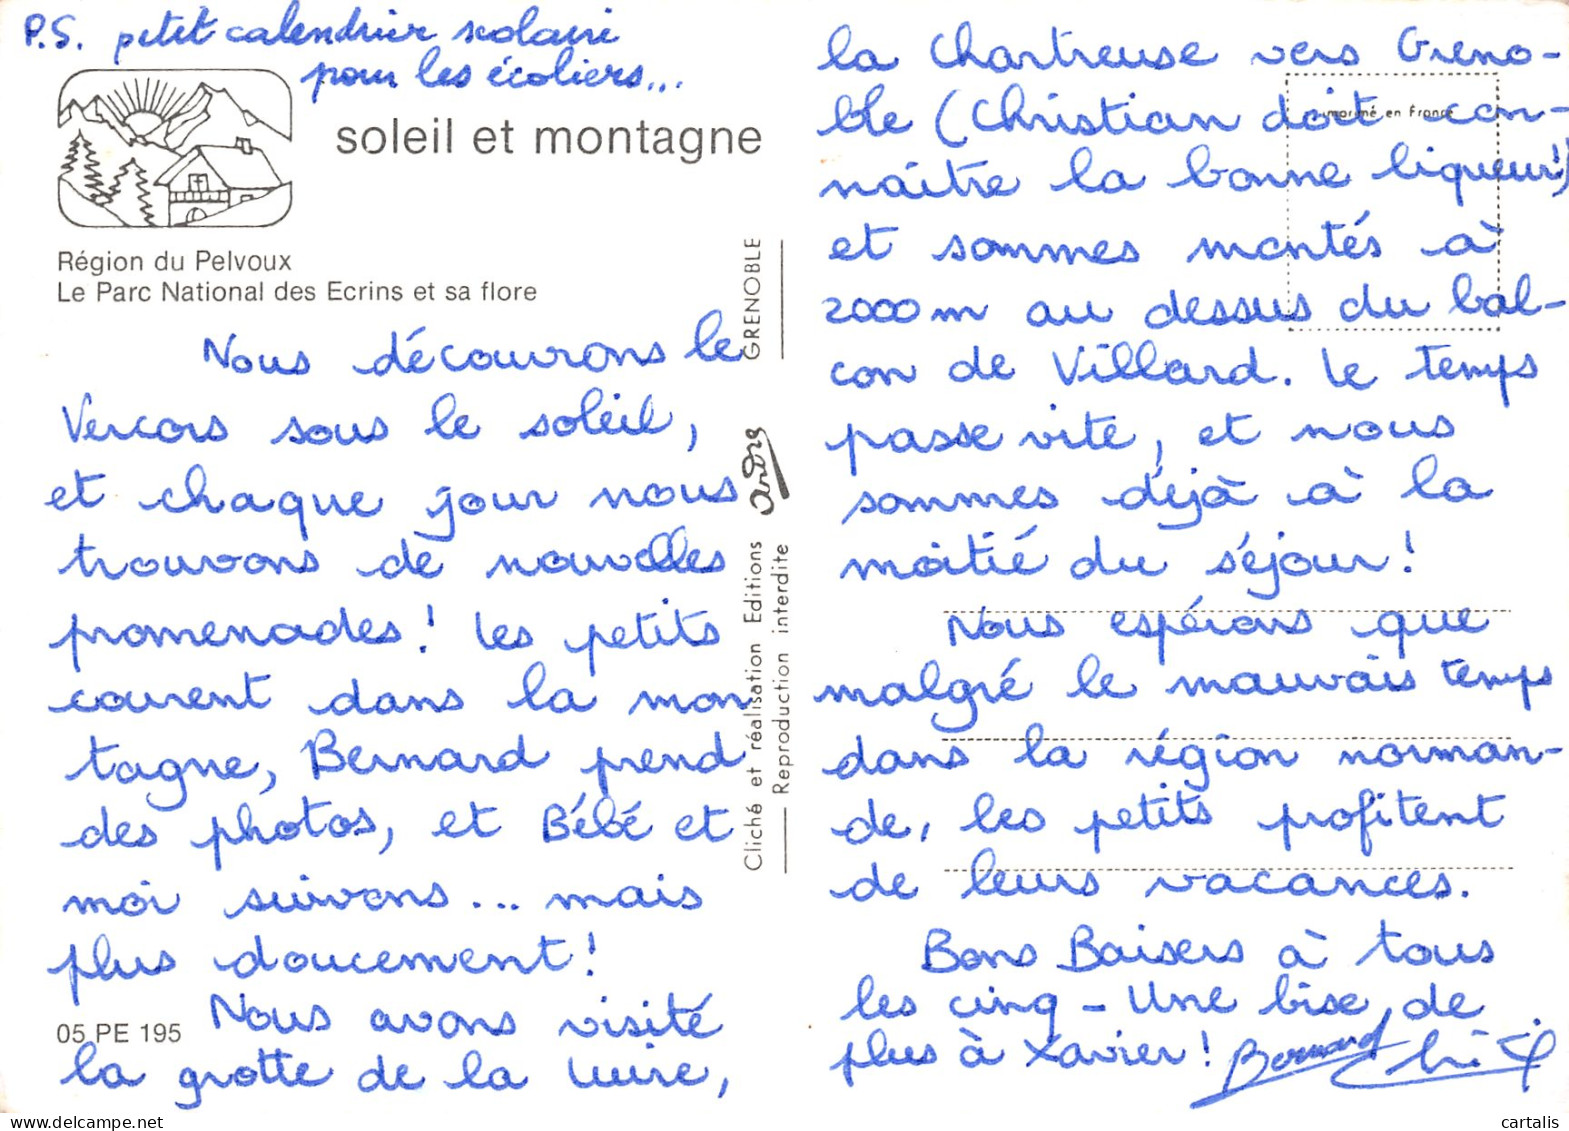 P.S. petit calendrier scolaire
pour les écoliers...
soleil et montagne
Région du Pelvoux
Le Parc National des Ecrins et sa flore
Nous découvrons le
Vercors sous le soleil,
et chaque jour nous
trouvons de nouvelles
promenades! Les petits
courent dans la mon
tagne, Bernard prend
des photos, et Bébé et
moi suivons... mais
plus doucement!
05 PE 195
Nous avons visité
la grotte de la Luire,
GRENOBLE
André
Cliché et réalisation Editions
Reproduction interdite
imprimé en France
la Chartreuse vers Greno-
ble (Christian doit con-
naître la bonne liqueur!)
et sommes montés à
2000 m au dessus du bal-
con de Villard. Le temps
passe vite, et nous
sommes déjà à la
moitié du séjour!
Nous espérons que
malgré le mauvais temps
dans la région norman-
de, les petits profitent
de leurs vacances.
Bons Baisers à tous
les cinq - Une bise, de
plus à Xavier! Bernard
cartalis